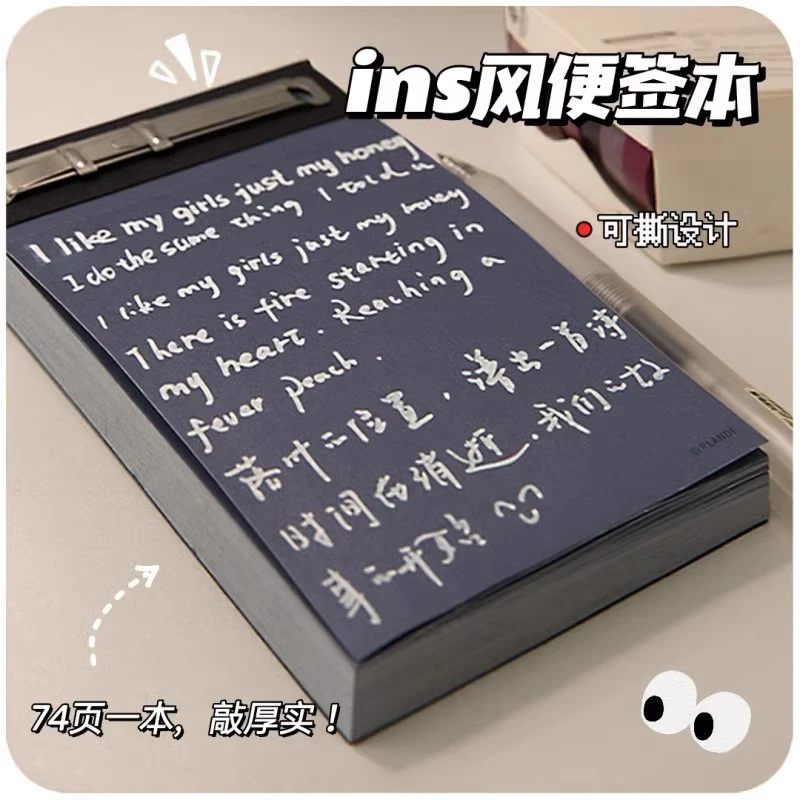 ins风便签本
可撕设计
I like my girls just my honey
I do the same thing I told u
I like my girls just my honey
There is fire starting in
my heart. Reaching a
fever peach.
落叶的位置，谱出一首诗
时间在消逝，我们的故
事的开始
©PLANDF
74页一本，敲厚实！